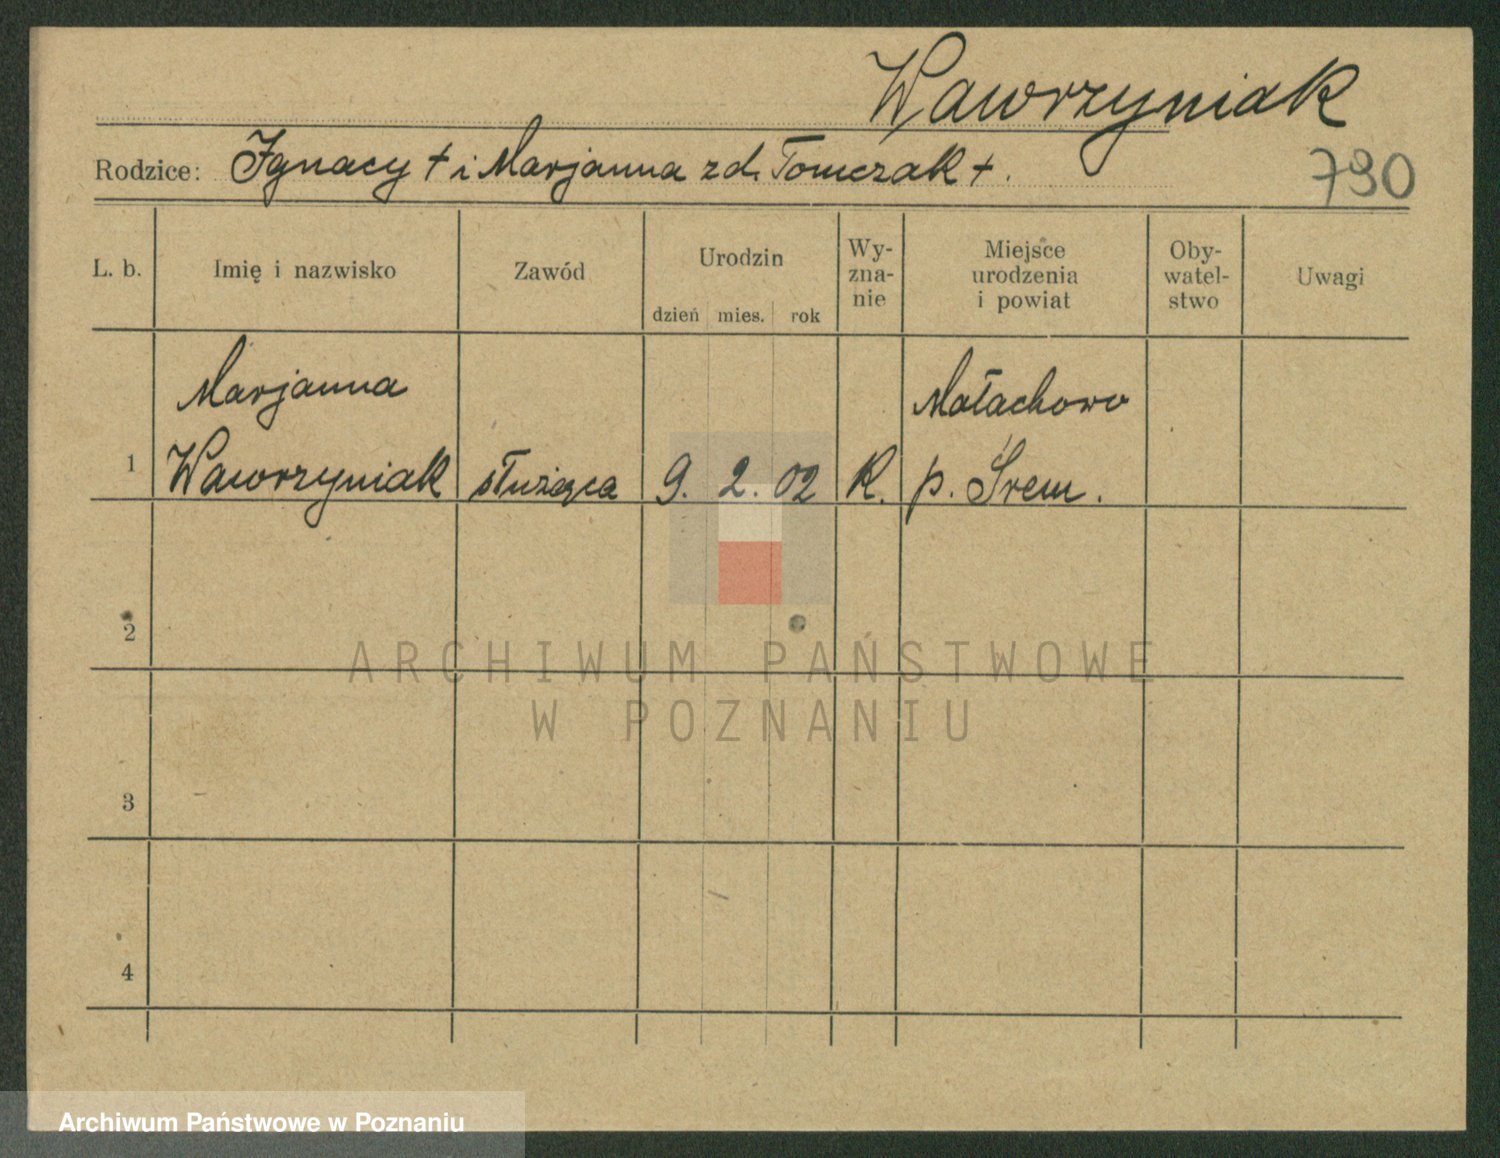 Wawrzyniak
Rodzice: Ignacy + i Marjanna zd. Tomczak +.
790
L. b. Imię i nazwisko Zawód Urodzin dzień mies. rok Wy-zna-nie Miejsce urodzenia i powiat Oby-watel-stwo Uwagi
Marjanna Małachowo
1 Wawrzyniak służąca 9. 2. 02 K. p. Śrem.
2
ARCHIWUM PAŃSTWOWE
W POZNANIU
3
4
Archiwum Państwowe w Poznaniu